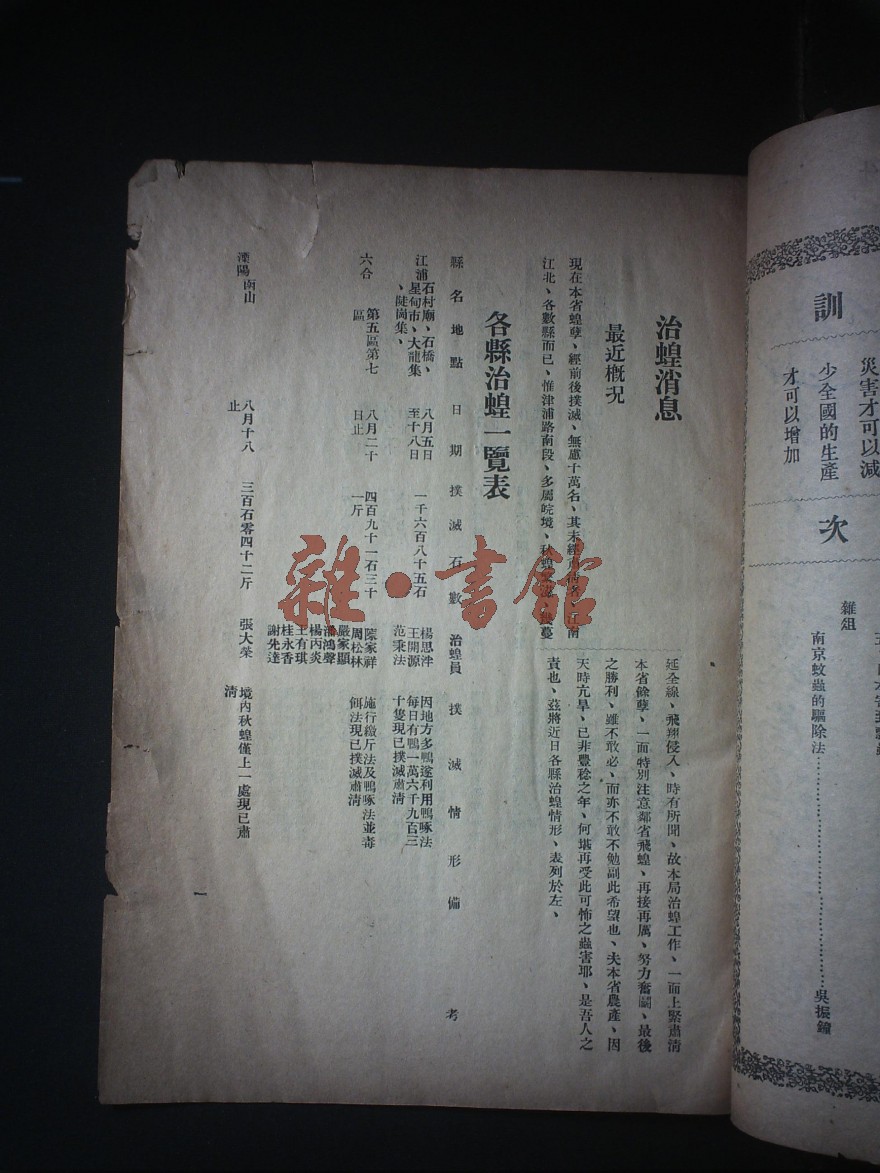 訓
災害才可以減
少全國的生產
才可以增加
次
雜組
南京蚊蟲的驅除法……………………吳振鐘
治蝗消息
最近概況
現在本省蝗孽、經前後撲滅、無慮十萬名、其未經
江北、各數縣而已、惟津浦路南段、多屬皖境、秋蝗
蔓
延全線、飛翔侵入、時有所聞、故本局治蝗工作、一面上緊肅清
本省餘孽、一面特別注意鄰省飛蝗、再接再厲、努力奮鬭、最後
之勝利、雖不敢必、而亦不敢不勉副此希望也、夫本省農產、因
天時亢旱、已非豐稔之年、何堪再受此可怖之蟲害耶、是吾人之
責也、茲將近日各縣治蝗情形、表列於左、
各縣治蝗一覽表
縣名 地點 日期 撲滅石數 治蝗員 撲滅情形 備考
江浦 石村廟、石橋、星甸市、大龍集、陡崗集、 八月五日至十八日 一千六百八十五石 楊思津 王開源 范秉法 因地方多鴨遂利用鴨啄法每日有鴨一萬六千九百三十隻現已撲滅肅清
六合 第五區第七區 八月二十日止 四百九十一石三十一斤 陳家祥 周松林 嚴家顯 潘鴻聲 楊丙炎 王有琪 桂永香 謝先達 施行繳斤法及鴨啄法並毒餌法現已撲滅肅清
溧陽 南山 八月十八止 三百石零四十二斤 張大榮 境內秋蝗僅上一處現已肅清
一
雜·書館